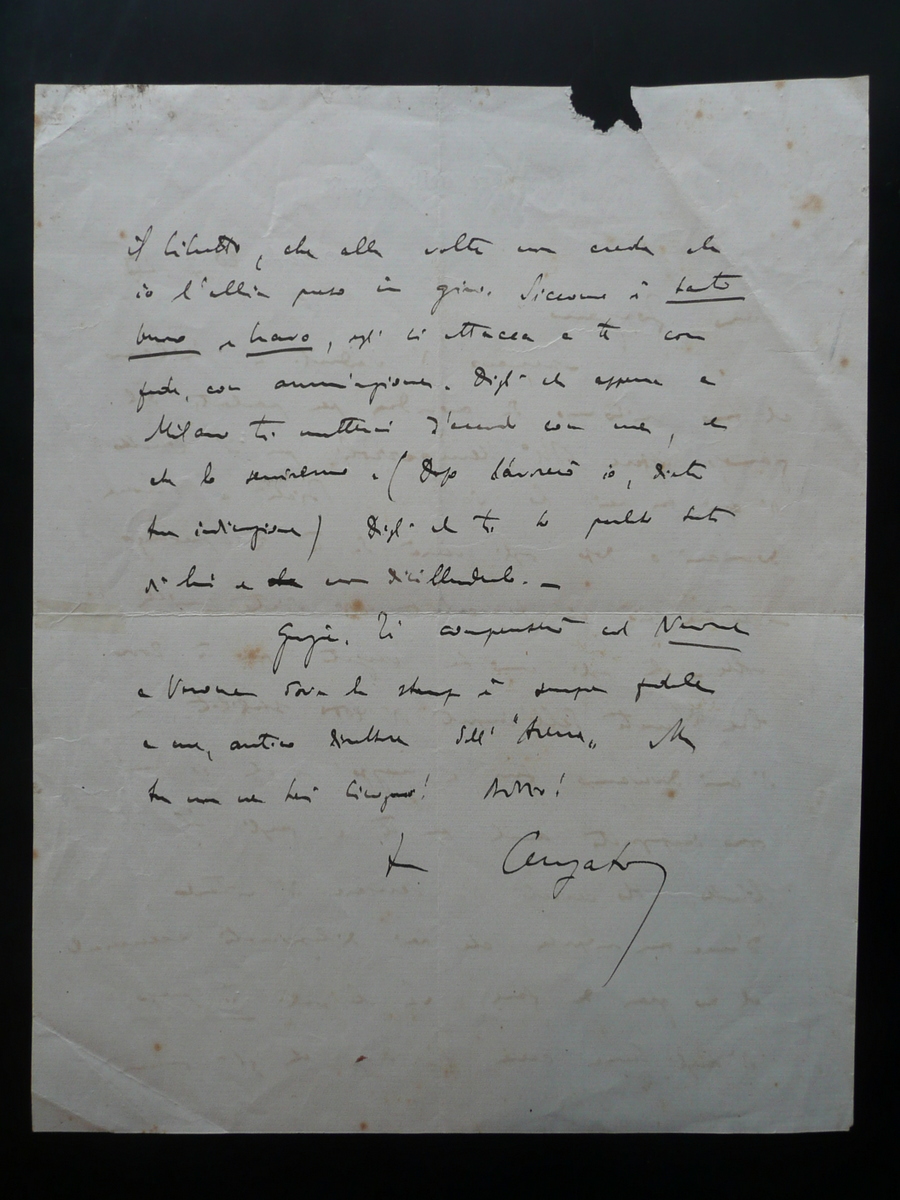 il libretto, che alle volte non creda che
io l'abbia preso in giro. Siccome è tanto
buono e bravo, egli si attacca a te con
fede, con ammirazione. Digli che appena a
Milano ti metterai d'accordo con me, e
che lo serviremo. (Dopo lavorerò io, dietro
tua indicazione) Digli che ti ho parlato
di lui e non disilluderlo. —
Grazie. Ti compenserò col Nerone
a Verona dove la stampa è sempre fedele
a me, antico direttore dell' "Arena„ Ma
tu non ne hai bisogno!
tuo Cenzato